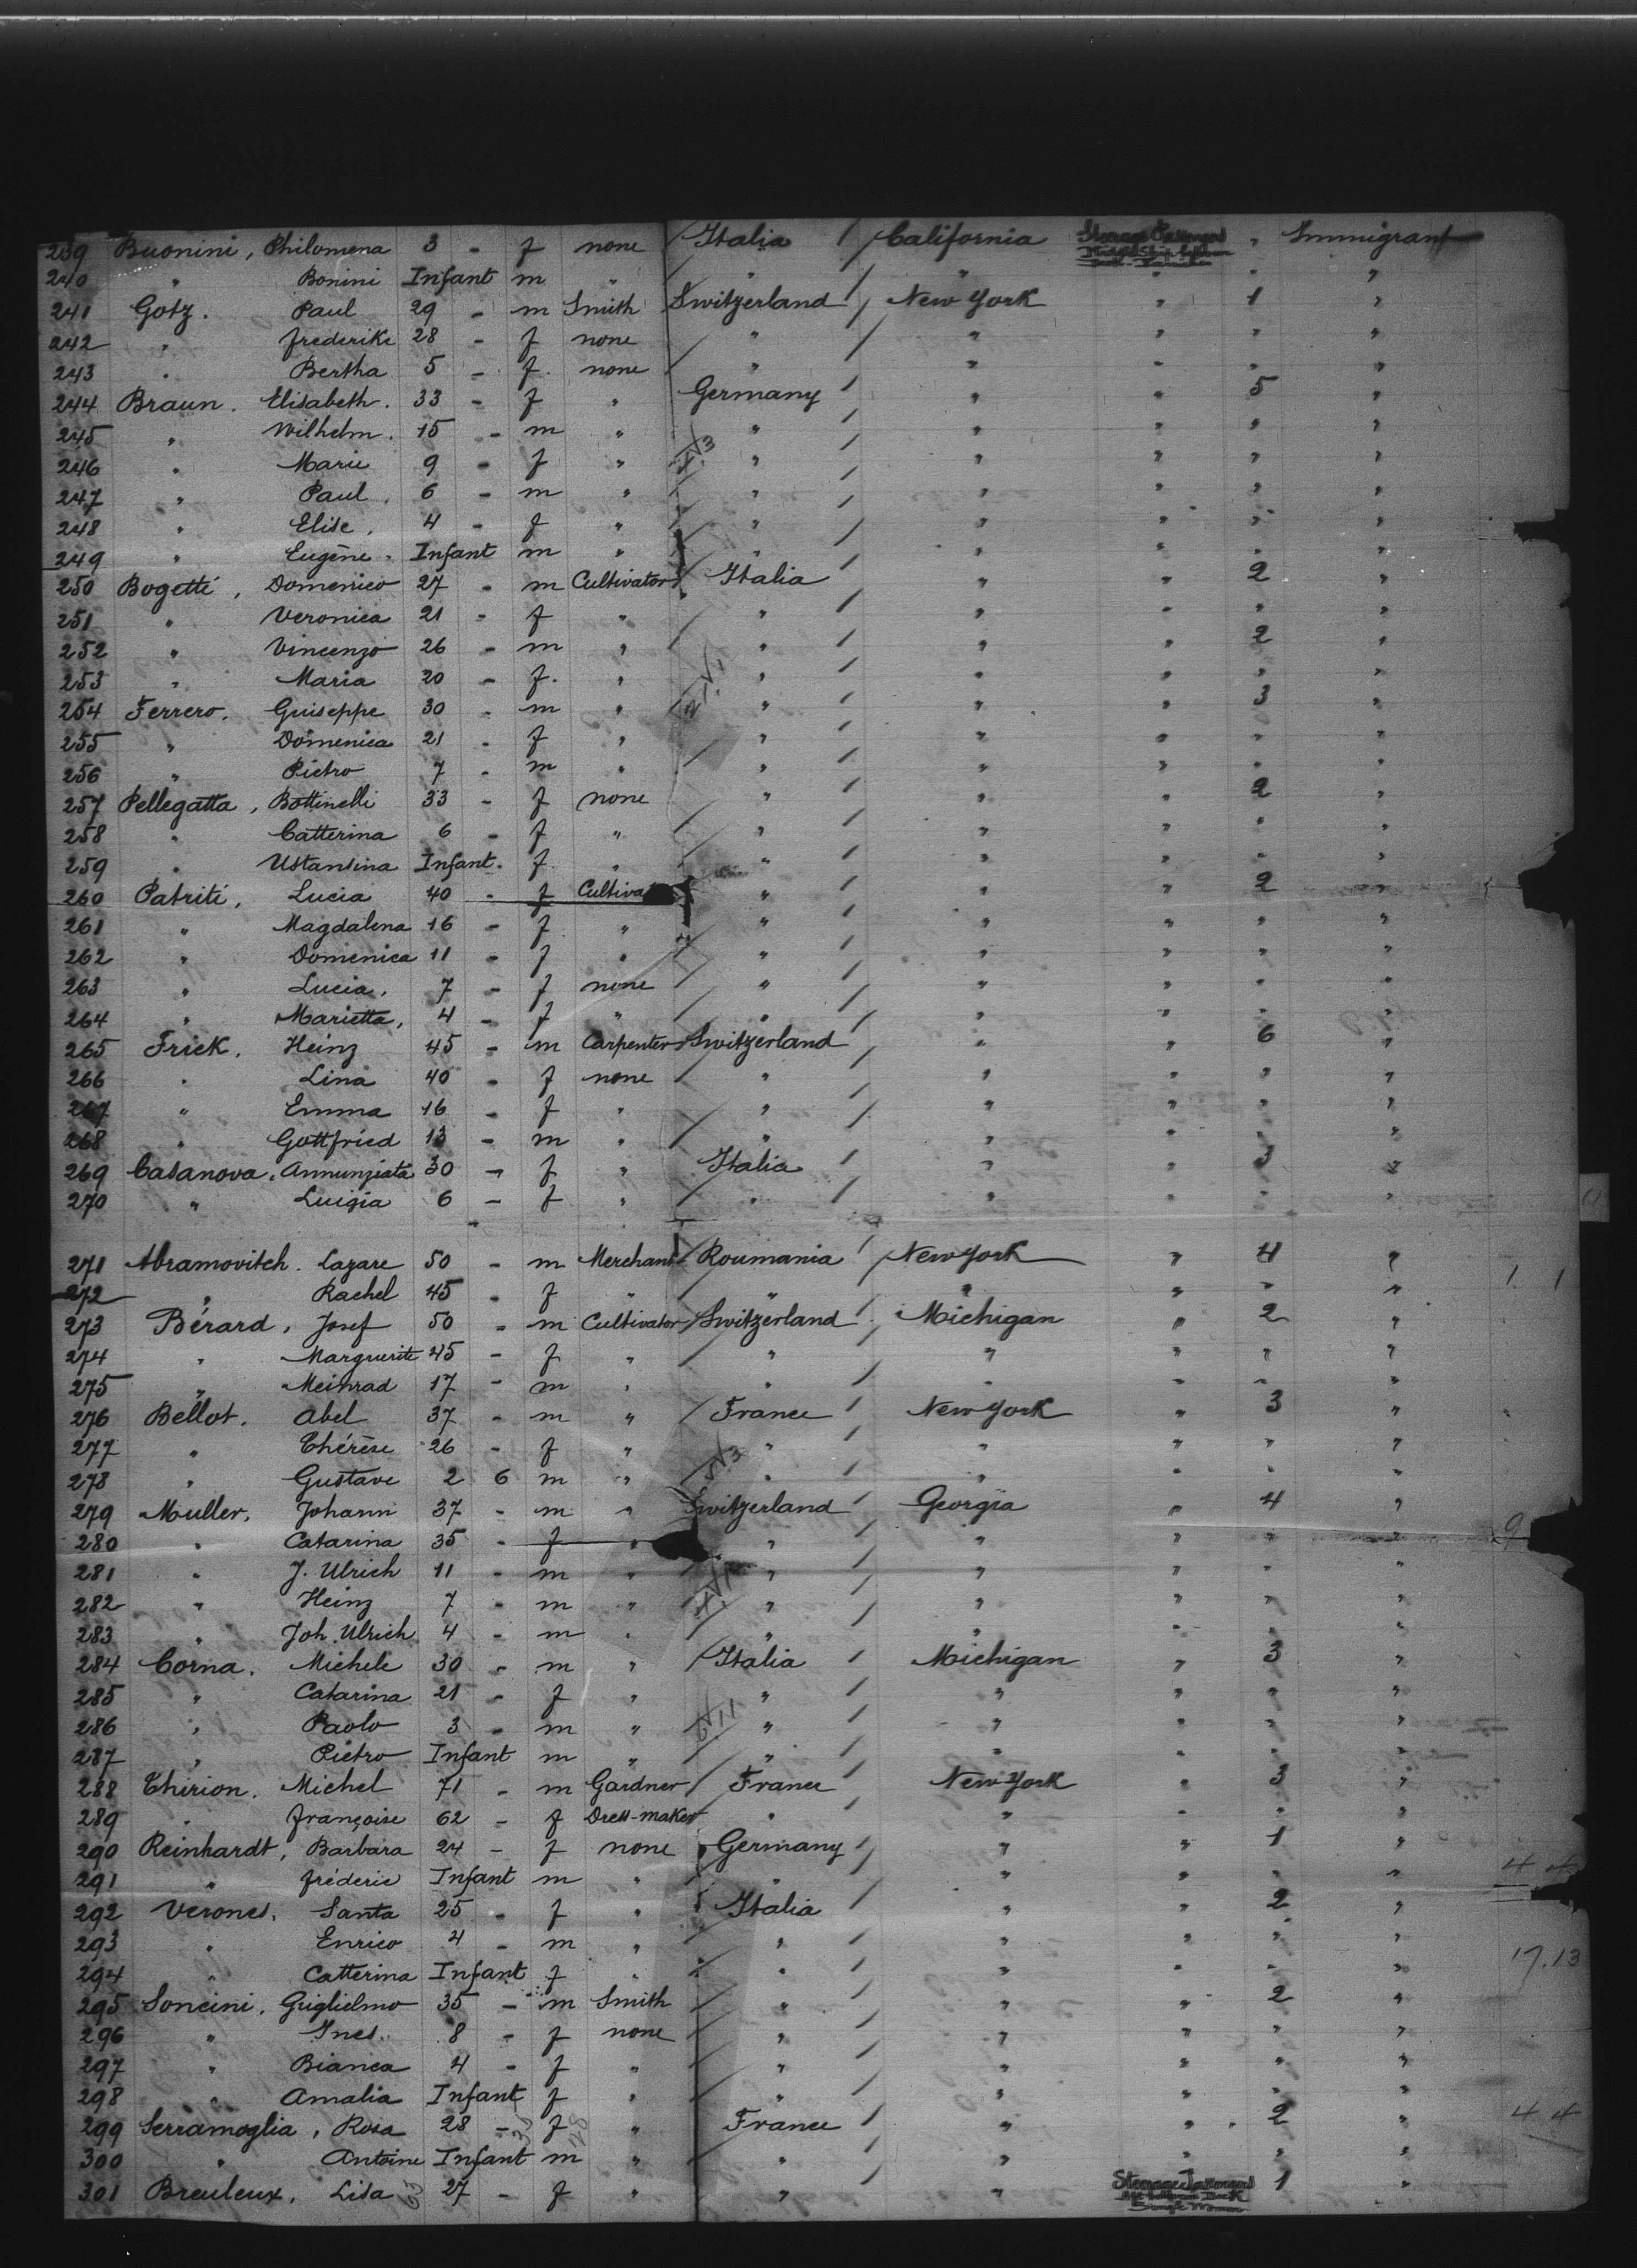 239 Buonini, Philomena 3 - f none Italia California Steerage Passengers " Immigrant
240 " Bonini Infant m " " " " " "
241 Gotz. Paul 29 - m Smith Switzerland New York " 1 "
242 " Frederike 28 - f none " " " " "
243 " Bertha 5 - f. none " " " " "
244 Braun. Elisabeth. 33 - f " Germany " " 5 "
245 " Wilhelm. 15 - m " " " " " "
246 " Marie 9 - f " " " " " "
247 " Paul. 6 - m " " " " " "
248 " Elise. 4 - f " " " " " "
249 " Eugène. Infant m " " " " " "
250 Bogetti, Domenico 27 - m Cultivator Italia " " 2 "
251 " Veronica 21 - f " " " " " "
252 " Vincenzo 26 - m " " " " 2 "
253 " Maria 20 - f. " " " " " "
254 Ferrero. Guiseppe 30 - m " " " " 3 "
255 " Domenica 21 - f " " " " " "
256 " Pietro 7 - m " " " " " "
257 Pellegatta, Bottinelli 33 - f none " " " 2 "
258 " Catterina 6 - f " " " " " "
259 " Ustansina Infant. f. " " " " " "
260 Patriti, Lucia 40 - f " " " 2 "
261 " Magdalena 16 - f " " " " " "
262 " Domenica 11 - f " " " " " "
263 " Lucia, 7 - f none " " " " "
264 " Marietta, 4 - f " " " " " "
265 Frick. Heinz 45 - m Carpenter Switzerland " " 6 "
266 " Lina 40 - f none " " " " "
267 " Emma 16 - f " " " " " "
268 " Gottfried 13 - m " " " " " "
269 Casanova. Annunziata 30 - f " Italia " " 3 "
270 " Luigia 6 - f " " " " " "
271 Abramovitch. Lazare 50 - m Merchant Roumania New York " 4 "
272 " Rachel 45 - f " " " " " " 1 1
273 Bérard, Josef 50 - m Cultivator Switzerland Michigan " 2 "
274 " Marguerite 45 - f " " " " " "
275 " Meinrad 17 - m " " " " " "
276 Bellot. Abel 37 - m " France New York " 3 "
277 " Thérèse 26 - f " " " " " "
278 " Gustave 2 6 m " " " " " "
279 Muller, Johann 37 - m " Switzerland Georgia " 4 "
280 " Catarina 35 - f " " " " " " 9
281 " J. Ulrich 11 - m " " " " " "
282 " Heinz 7 - m " " " " " "
283 " Joh. Ulrich 4 - m " " " " " "
284 Corna. Michele 30 - m " Italia Michigan " 3 "
285 " Catarina 21 - f " " " " " "
286 " Paolo 3 - m " " " " " "
287 " Pietro Infant m " " " " " "
288 Thirion. Michel 71 - m Gardner France New York " 3 "
289 " Françoise 62 - f Dress-maker " " " " "
290 Reinhardt, Barbara 24 - f none Germany " " 1 "
291 " Fréderic Infant m " " " " " " 4 4
292 Verones. Santa 25 - f " Italia " " 2 "
293 " Enrico 4 - m " " " " " "
294 " Catterina Infant f " " " " " " 17.13
295 Soncini. Griglielmo 35 - m Smith " " " 2 "
296 " Ines. 8 - f none " " " " "
297 " Bianca 4 - f " " " " " "
298 " Amalia Infant f " " " " " "
299 Serramoglia, Rosa 28 - f " France " " 2 " 4 4
300 " Antoine Infant m " " " " " "
301 Breuleux, Lisa 27 - f " " " Steerage Passengers 1 "
Single Women